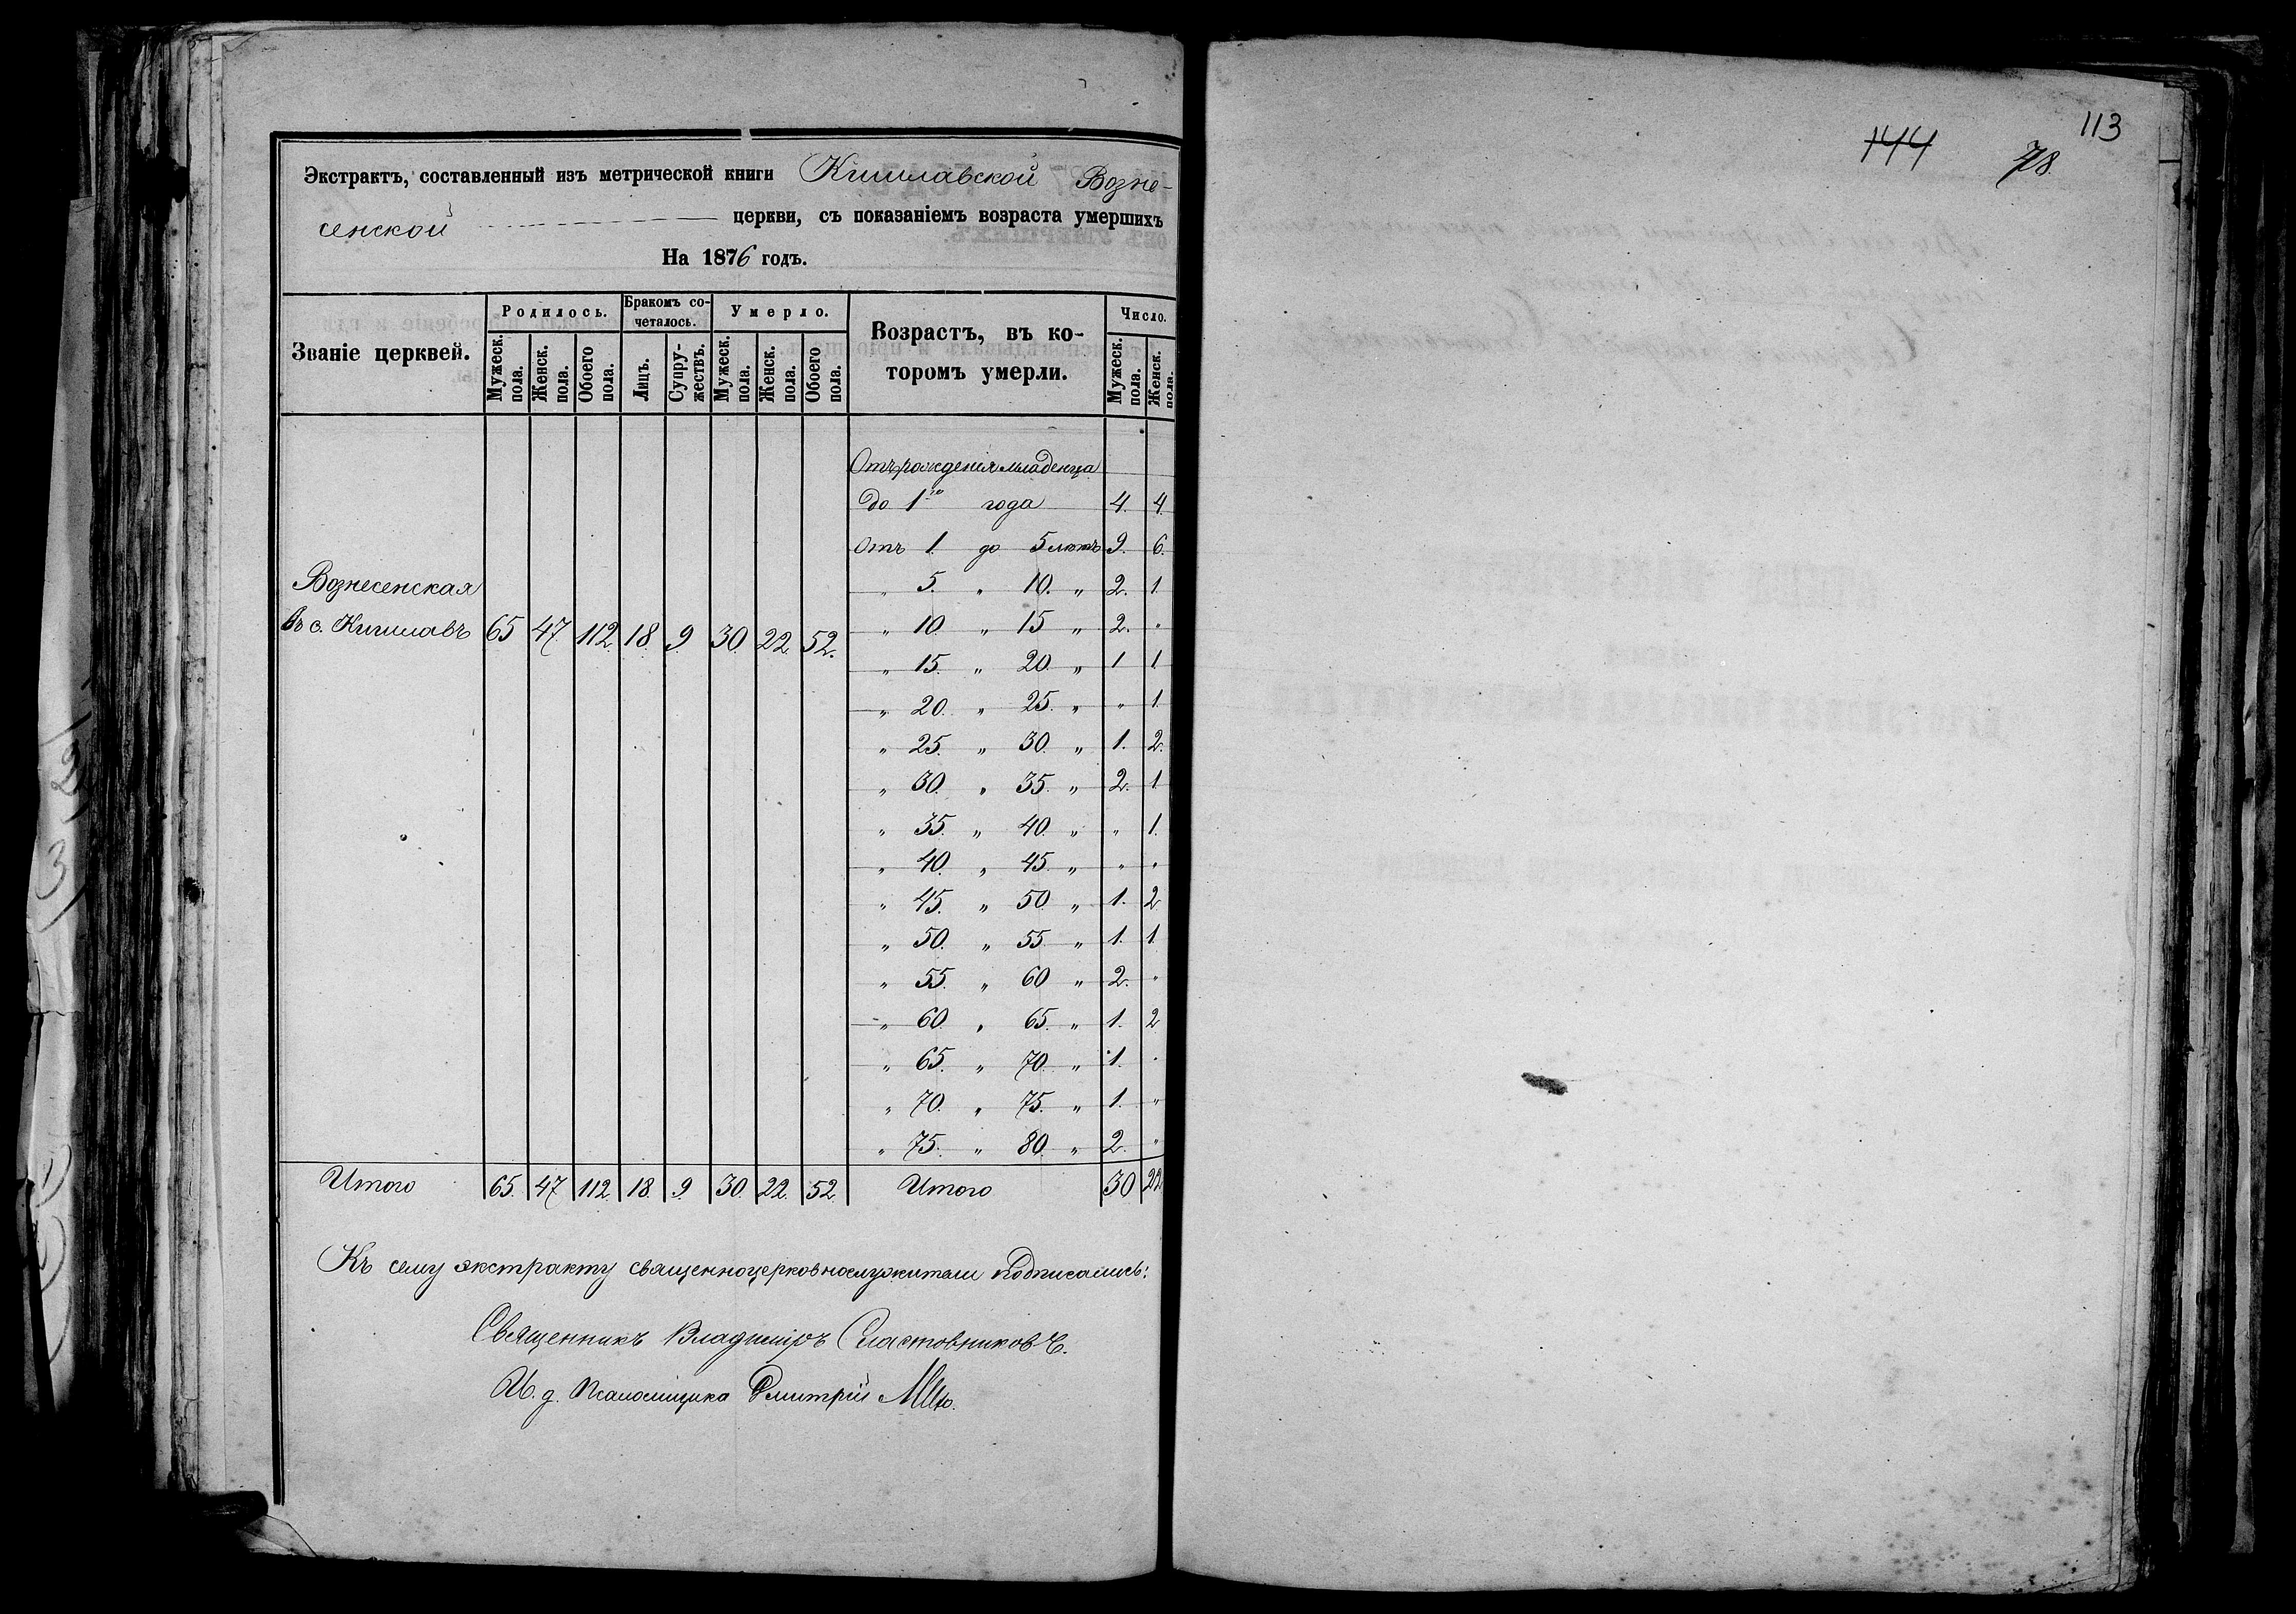 Экстрактъ, составленный изъ метрической книги Кишлавской Возне-
сенской церкви, съ показаніемъ возраста умершихъ
На 1876 годъ.
Званіе церквей. Родилось. Бракомъ сочеталось. Умерло. Возрастъ, въ ко- Число.
тором умерли.
Мужеск. пола. Женск. пола. Обоего пола. Лицъ. Супру-жествъ. Мужеск. пола. Женск. пола. Обоего пола. Мужеск. пола. Женск. пола.
Отъ рожденія младенца
до 1го года 4. 4.
Отъ 1. до 5 лѣтъ 9. 6.
Вознесенская
" 5. " 10. " 2. 1.
въ с. Кишлавъ 65 47 112. 18. 9. 30. 22. 52.
" 10. " 15 " 2. "
" 15. " 20. " 1 1
" 20. " 25. " " 1.
" 25. " 30. " 1. 2.
" 30. " 35. " 2. 1
" 35. " 40. " " 1.
" 40. " 45. " " "
" 45. " 50. " 1. 2
" 50. " 55. " 1. 1.
" 55. " 60 " 2. "
" 60. " 65. " 1. 2
" 65. " 70. " 1. "
" 70. " 75. " 1. "
" 75. " 80. " 2. "
Итого 65. 47 112. 18. 9. 30. 22. 52. Итого 30 22.
Къ сему экстракту священноцерковнослужители подписались:
Священникъ Владиміръ Сластовниковъ.
И. д. Псаломщика Дмитрій
113
144
78.